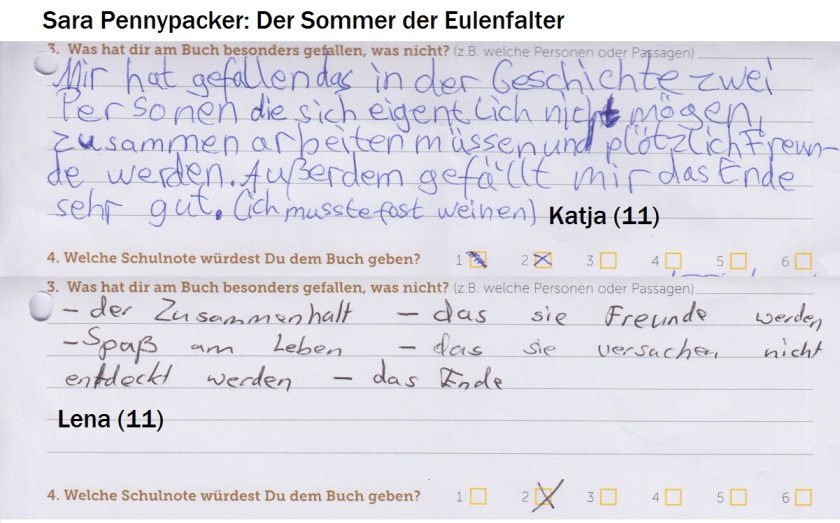 Sara Pennypacker: Der Sommer der Eulenfalter
3. Was hat dir am Buch besonders gefallen, was nicht? (z.B. welche Personen oder Passagen)
Mir hat gefallen das in der Geschichte zwei
Personen die sich eigentlich nicht mögen,
zusammen arbeiten müssen und plötzlich Freun-
de werden. Außerdem gefällt mir das Ende
sehr gut. (ich musste fast weinen) Katja (11)
4. Welche Schulnote würdest Du dem Buch geben? 1 2 3 4 5 6
3. Was hat dir am Buch besonders gefallen, was nicht? (z.B. welche Personen oder Passagen)
- der Zusammenhalt - das sie Freunde werden
- Spaß am Leben - das sie versuchen nicht
entdeckt werden - das Ende
Lena (11)
4. Welche Schulnote würdest Du dem Buch geben? 1 2 3 4 5 6